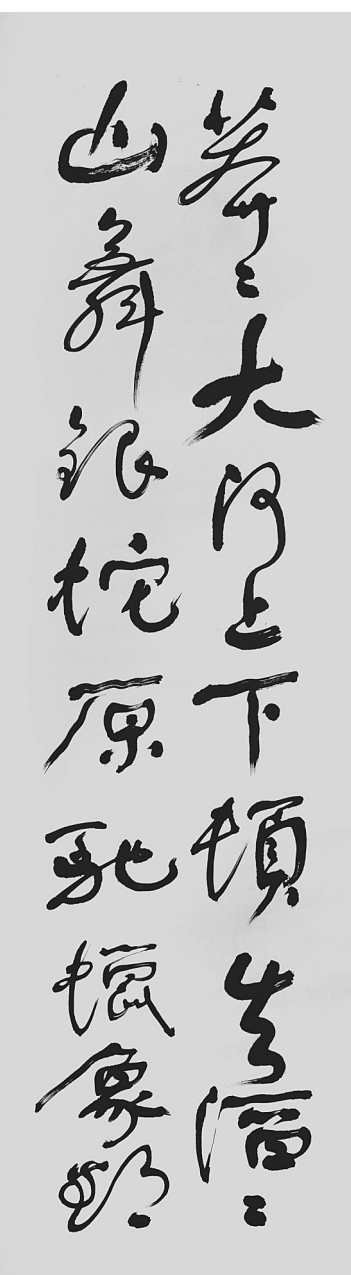 莽々大河上下頓失滔々
山舞銀蛇原馳蠟象欲